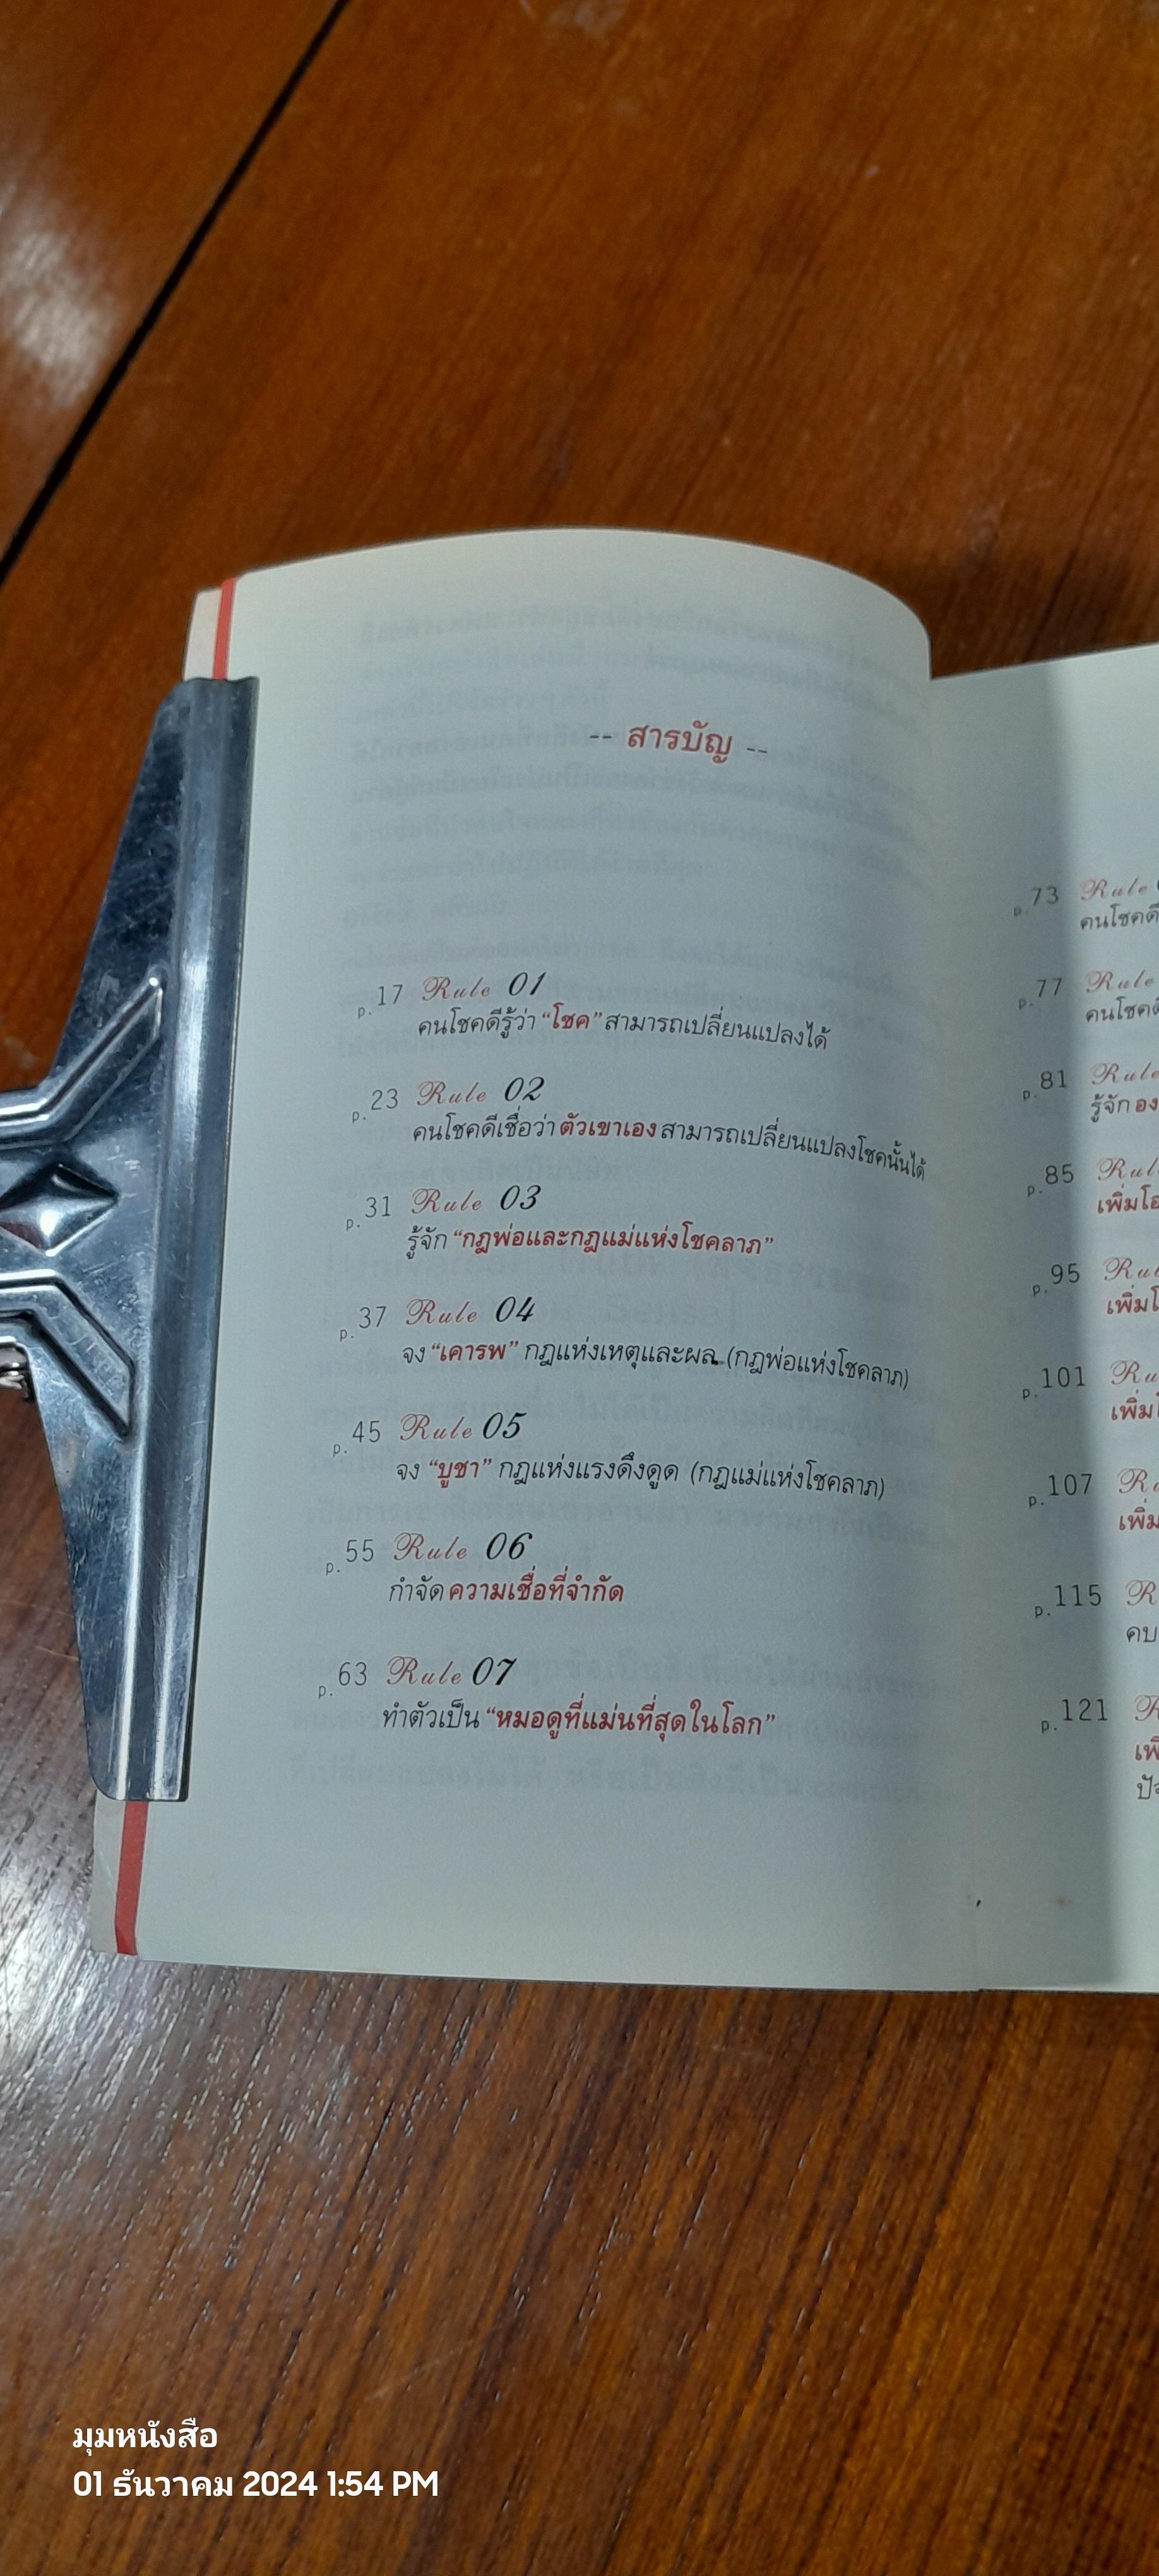 -- สารบัญ --
p.17 Rule 01
คนโชคดีรู้ว่า “โชค” สามารถเปลี่ยนแปลงได้
p.23 Rule 02
คนโชคดีเชื่อว่า ตัวเขาเอง สามารถเปลี่ยนแปลงโชคนั้นได้
p.31 Rule 03
รู้จัก “กฎพ่อและกฎแม่แห่งโชคลาภ”
p.37 Rule 04
จง “เคารพ” กฎแห่งเหตุและผล (กฎพ่อแห่งโชคลาภ)
p.45 Rule 05
จง “บูชา” กฎแห่งแรงดึงดูด (กฎแม่แห่งโชคลาภ)
p.55 Rule 06
กำจัด ความเชื่อที่จำกัด
p.63 Rule 07
ทำตัวเป็น “หมอดูที่แม่นที่สุดในโลก”
p.73 Rule
คนโชคดี
p.77 Rule
คนโชคดี
p.81 Rule
รู้จัก
p.85 Rule
เพิ่ม
p.95
เพิ่ม
p.101
เพิ่ม
p.107
เพิ่ม
p.115
p.121
มุมหนังสือ
01 ธันวาคม 2024 1:54 PM